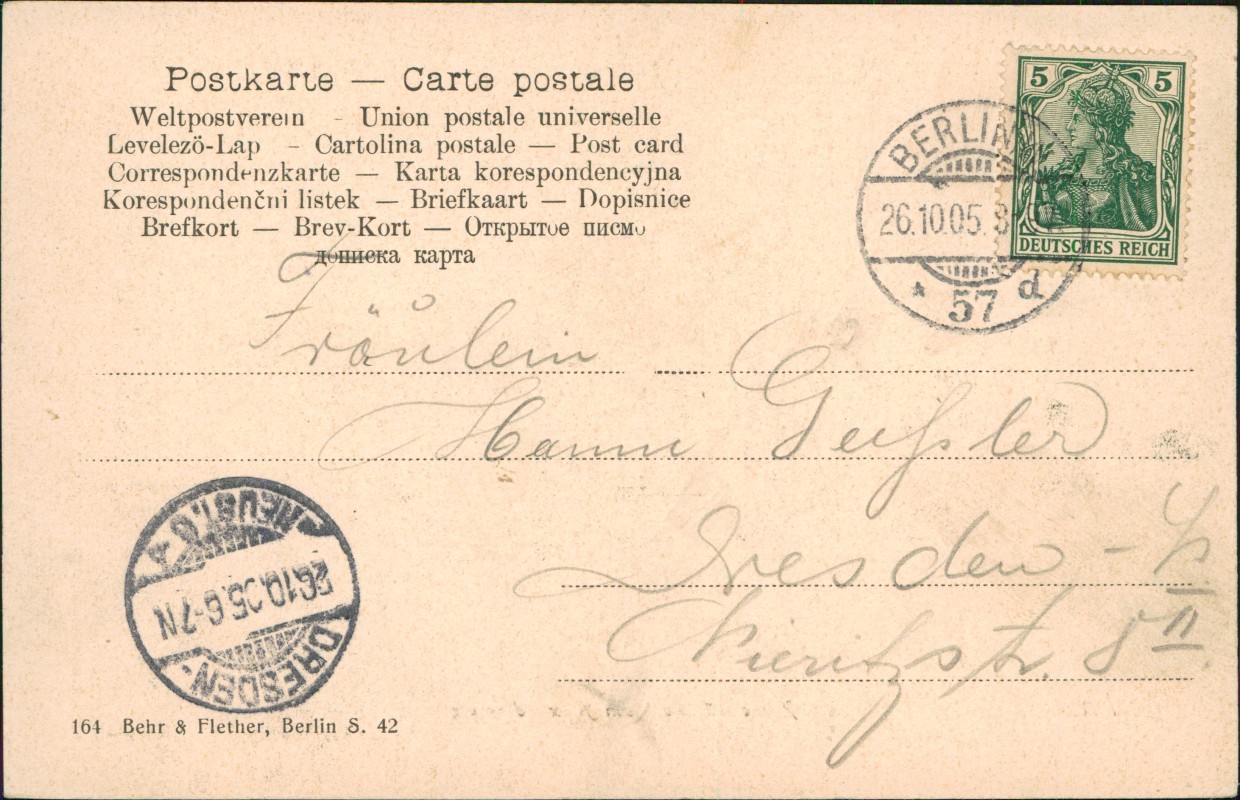 Postkarte — Carte postale
Weltpostverein - Union postale universelle
Levelezö-Lap - Cartolina postale — Post card
Correspondenzkarte — Karta korespondencyjna
Korespondenčni listek — Briefkaart — Dopisnice
Brefkort — Brev-Kort — Открытое письмо
дописка карта
5 5
DEUTSCHES REICH
BERLIN
26.10.05.
* 57 d
Fräulein
Hanni Geißler
Dresden - N
Nieritzstr. 8 II
NEUST. 6
26.10.05.6-7N
DRESDEN.
164 Behr & Flether, Berlin S. 42